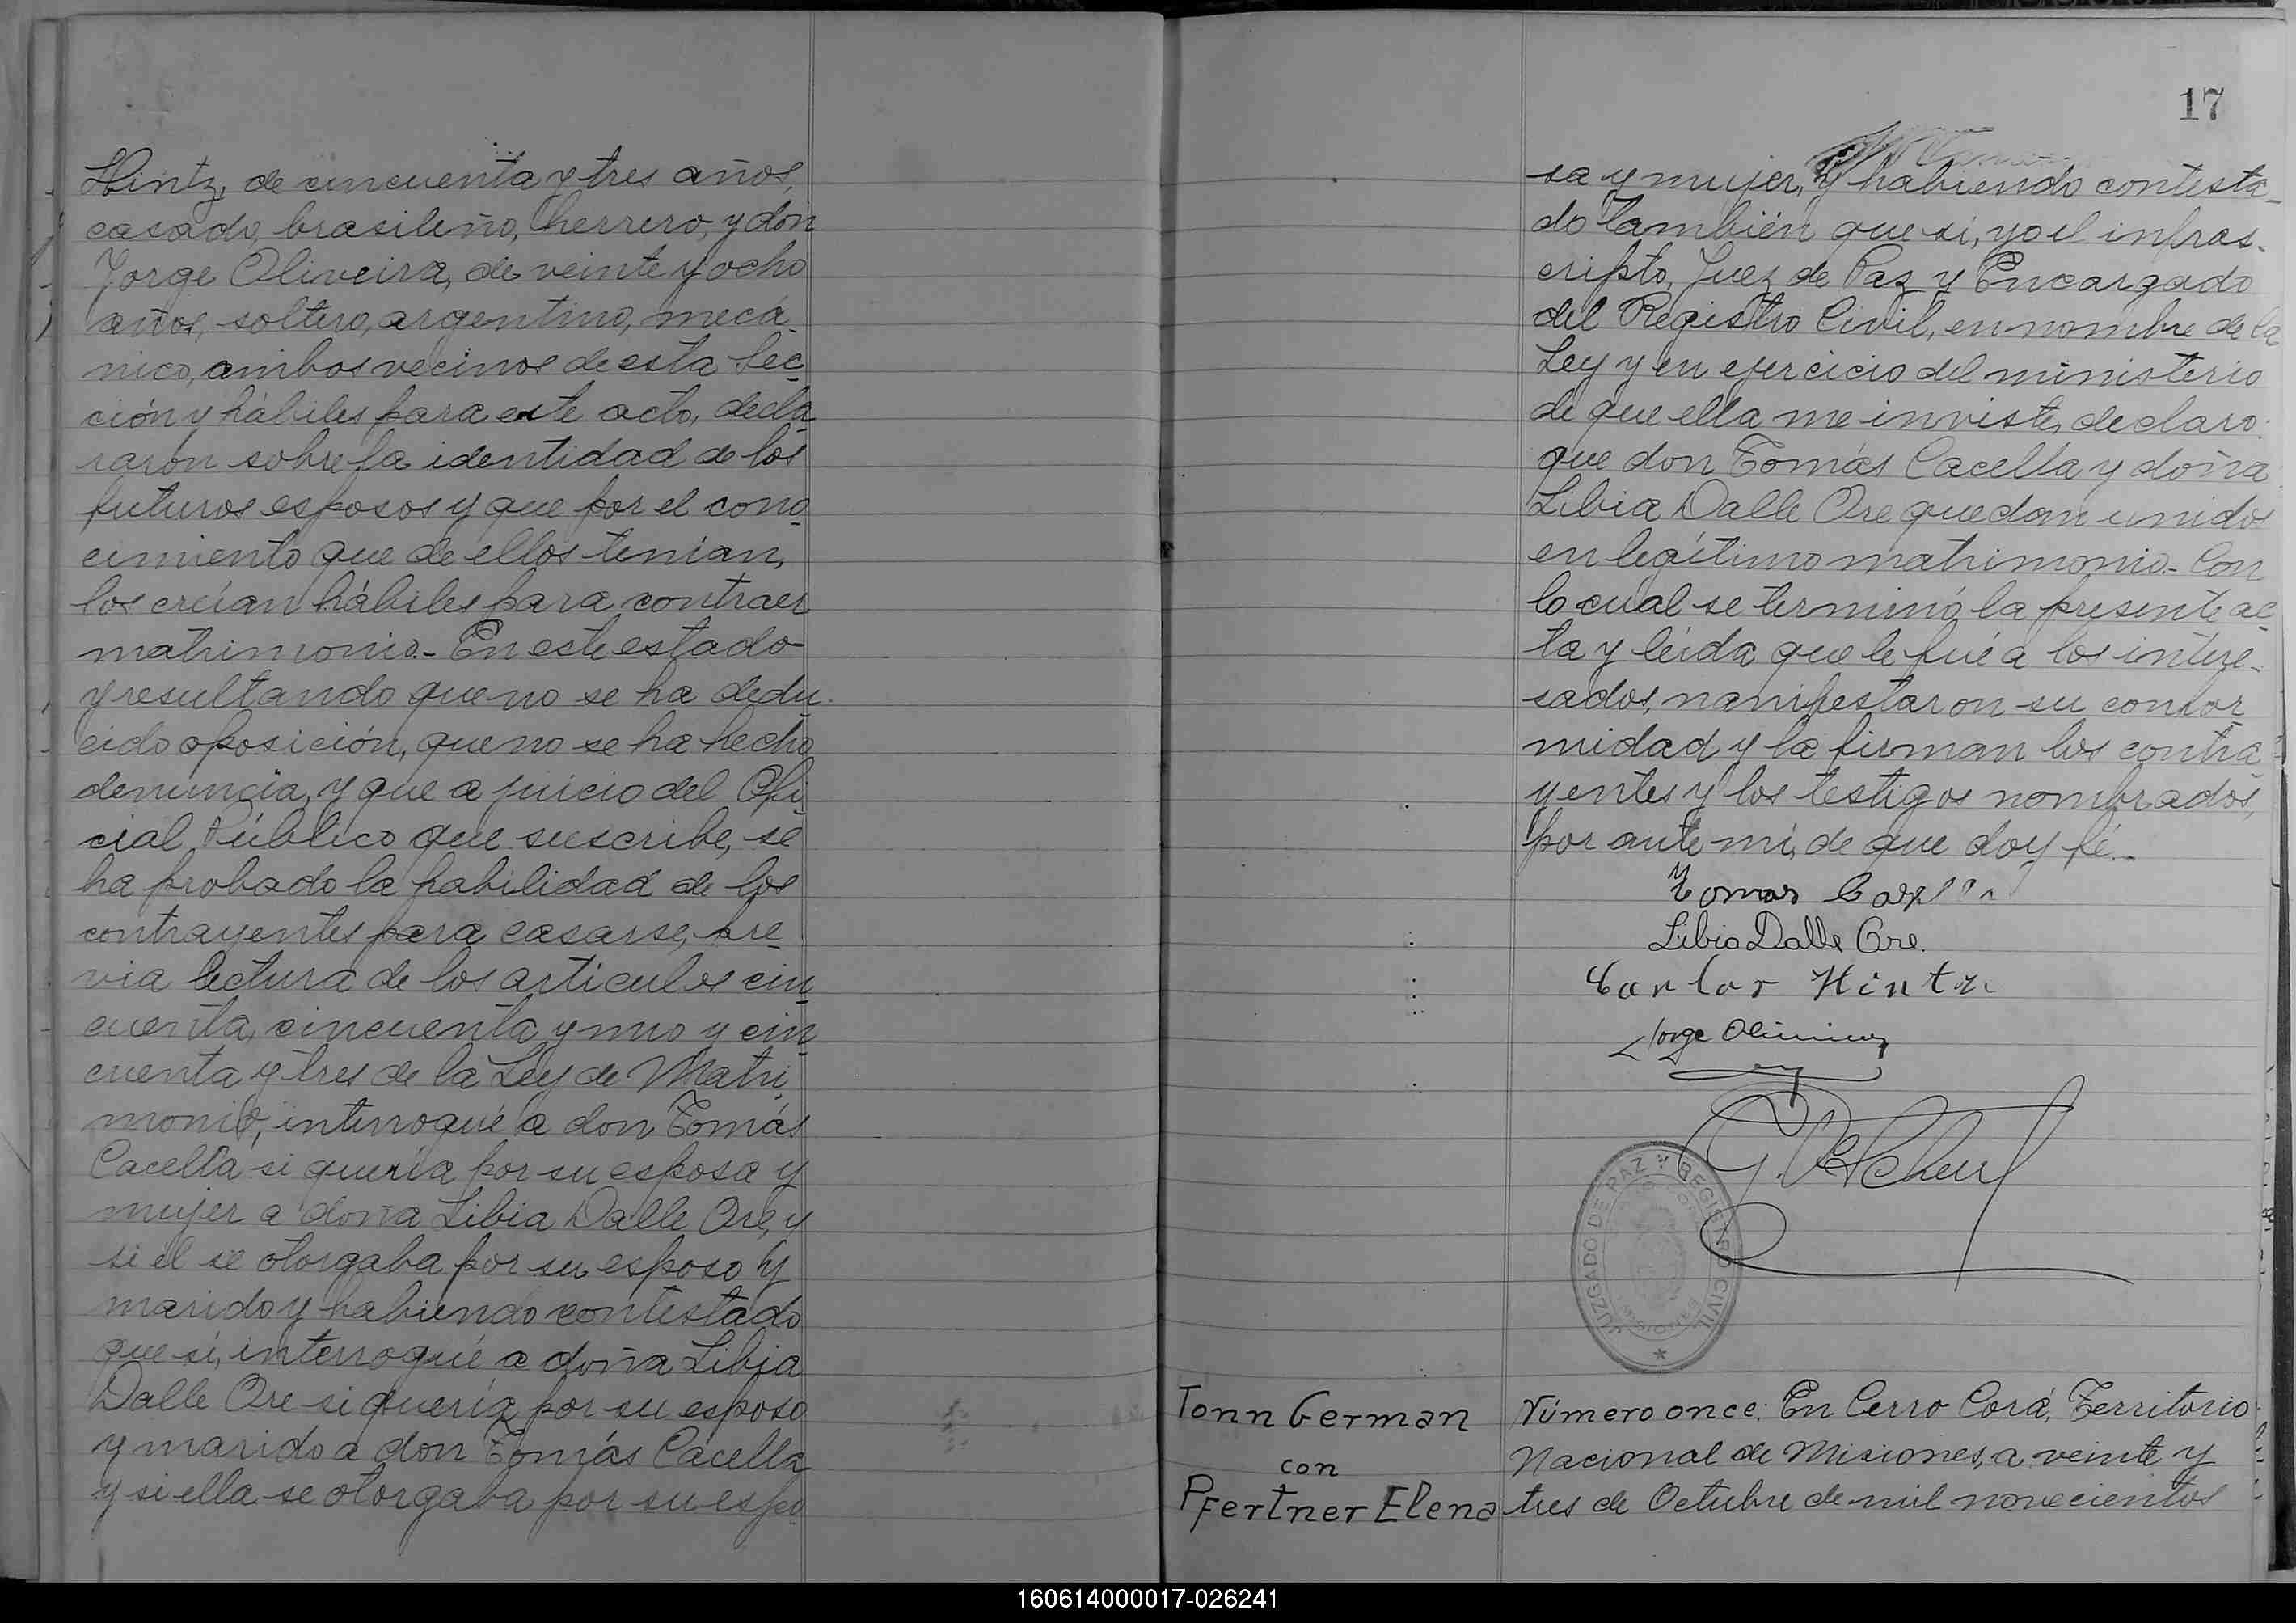 Hintz, de cincuenta y tres años,
casado, brasileño, herrero, y don
Jorge Oliveira, de veinte y ocho
años, soltero, argentino, mecá-
nico, ambos vecinos de esta Sec-
ción y hábiles para este acto, decla-
raron sobre la identidad de los
futuros esposos y que por el cono-
cimiento que de ellos tenian,
los creían hábiles para contraer
matrimonio.- En este estado
y resultando que no se ha dedu-
cido oposición, que no se ha hecho
denuncia, y que a juicio del Ofi-
cial Público que suscribe, se
ha probado la habilidad de los
contrayentes para casarse, pre-
via lectura de los articulos cin-
cuenta, cincuenta y uno y cin-
cuenta y tres de la Ley de Matri-
monio, interrogué a don Tomás
Cacella si quería por su esposa y
mujer a doña Libia Dalle Ore, y
si él se otorgaba por su esposo y
marido y habiendo contestado
que sí, interrogué a doña Libia
Dalle Ore si quería por su esposo
y marido a don Tomás Cacella
y si ella se otorgaba por su espo
17
sa y mujer, y habiendo contesta-
do también que sí, yo el infras-
cripto, Juez de Paz y Encargado
del Registro Civil, en nombre de la
Ley y en ejercicio del ministerio
de que ella me inviste, declaro:
que don Tomás Cacella y doña
Libia Dalle Ore quedan unidos
en legítimo matrimonio.- Con
lo cual se terminó la presente ac-
ta y leída que le fué a los intere-
sados, manifestaron su confor-
midad y la firman los contra
yentes y los testigos nombrados,
por ante mí, de que doy fé.-
Tomas
Libia Dalle Ore.
Carlos Hintz
Jorge
JUZGADO DE PAZ Y REGISTRO CIVIL
Tonn German
con
Pfertner Elena
Número once: En Cerro Corá, Territorio
Nacional de Misiones, a veinte y
tres de Octubre de mil novecientos
160614000017-026241